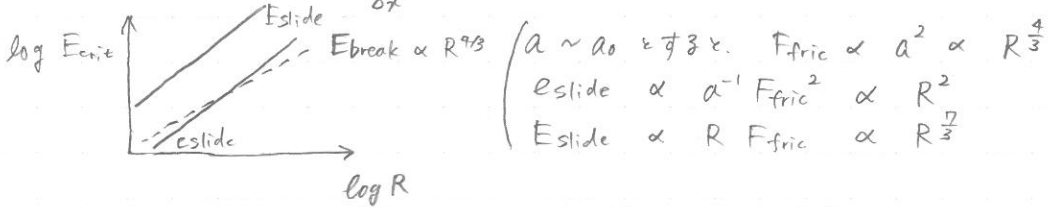 log Ecrit
Eslide
Ebreak ∝ R^4/3
eslide
log R
a ~ a₀ とすると. Ffric ∝ a² ∝ R^4/3
eslide ∝ a⁻¹ Ffric² ∝ R²
Eslide ∝ R Ffric ∝ R^7/3